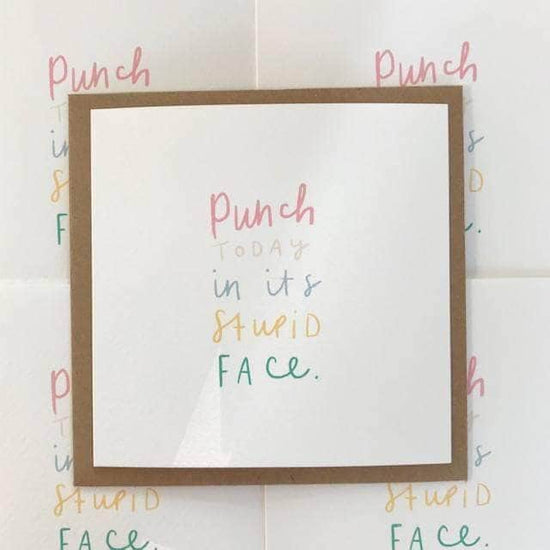 Punch
TODAY
in its
StupiD
FACe.
Punch
T
in
S
F
Punch
s
D
.
P
T
in
StupiD
FACe.
h
s
StupiD
FACe.